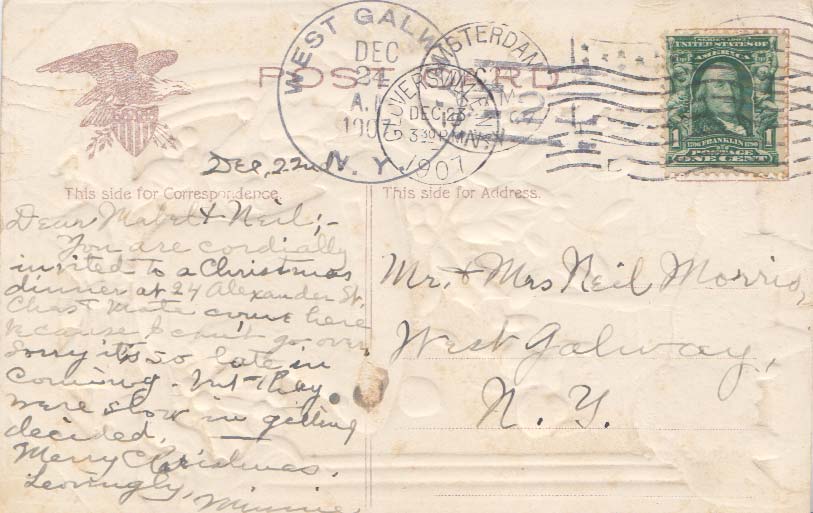 POST CARD
WEST GALW
DEC
24
A.
1907
N.Y.
AMSTERDAM
DEC 23
3 30 P
1907
SERIES 1902
UNITED STATES OF AMERICA
1 1
1706 FRANKLIN 1790
POSTAGE
ONE CENT
Dec, 22nd
This side for Correspondence.
This side for Address.
Dear Mabel & Neil;-
You are cordially
invited to a Christmas
dinner at 24 Alexander St.
Chas & Mate come here
because I can't go over
Sorry it's so late in
coming. but they
were slow in getting
decided.
Merry Christmas.
Lovingly, Minnie.
Mr. & Mrs Neil Morris,
West Galway,
N. Y.